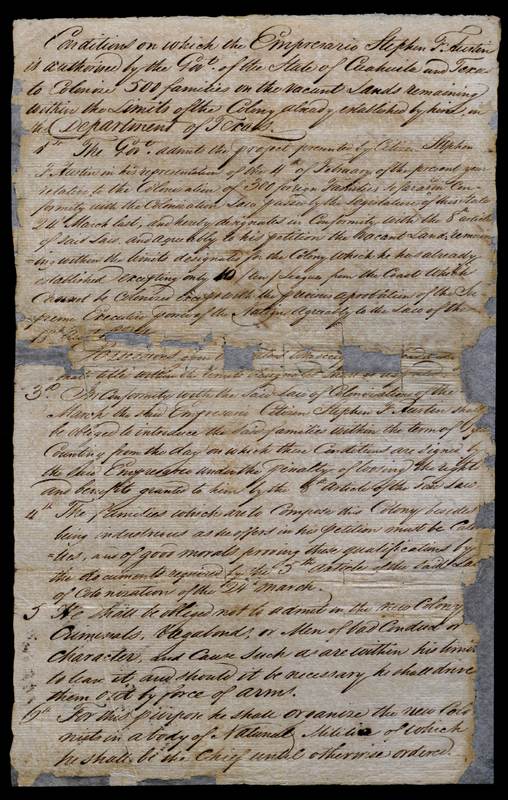 Conditions on which the Empresario Stephen F. Austin
is authorised by the Govt. of the State of Coahuila and Texas
to Colonise 500 families on the vacant Lands remaining
within the Limits of the Colony already established by him, in
the Department of Texas.
1st The Govt. admits the project presented by Citizen Stephen
F. Austin in his representation of the 4th of February of the present year
relative to the Colonisation of 300 foreign families so far as in Con-
formity with the Colonisation Law passed by the Legislature of this State
24 March last, and hereby designates in Conformity with the 8 article
of said Law, and agreeably to his petition the vacant Land, remain-
ing within the limits designated for the Colony which he has already
established excepting only 10 leagues from the Coast which
Cannot be Colonised except with the previous aprobation of the Su-
preme Executive power of the Nation agreeably to the Law of the
Possessions
titles within the limits designated
3d. In Conformity with the said Law of Colonisation of the
March the said Empresario Citizen Stephen F. Austin shall
be obliged to introduce the said families within the term of
Counting from the day on which these Conditions are signed by
the said Empresario under the penalty of loosing the rights
and benefits granted to him by the 8th article of the said Law
4th The families which are to Compose this Colony besides
being industrious as he offers in his petition must be Catho-
=lics, and of good morals proving these qualifications by
the documents required by the 5th article of the said Law
of Colonisation of the 24 March.
5 He shall be obliged not to admit in the new Colony
Criminals, Vagabonds, or Men of bad Conduct or
Character, and Cause such as are within his limits
to leave it, and should it be necessary he shall drive
them out by force of arms.
6th For this purpose he shall organize the new Colo
nists in a body of National Militia of which
he shall be the Chief until otherwise ordered